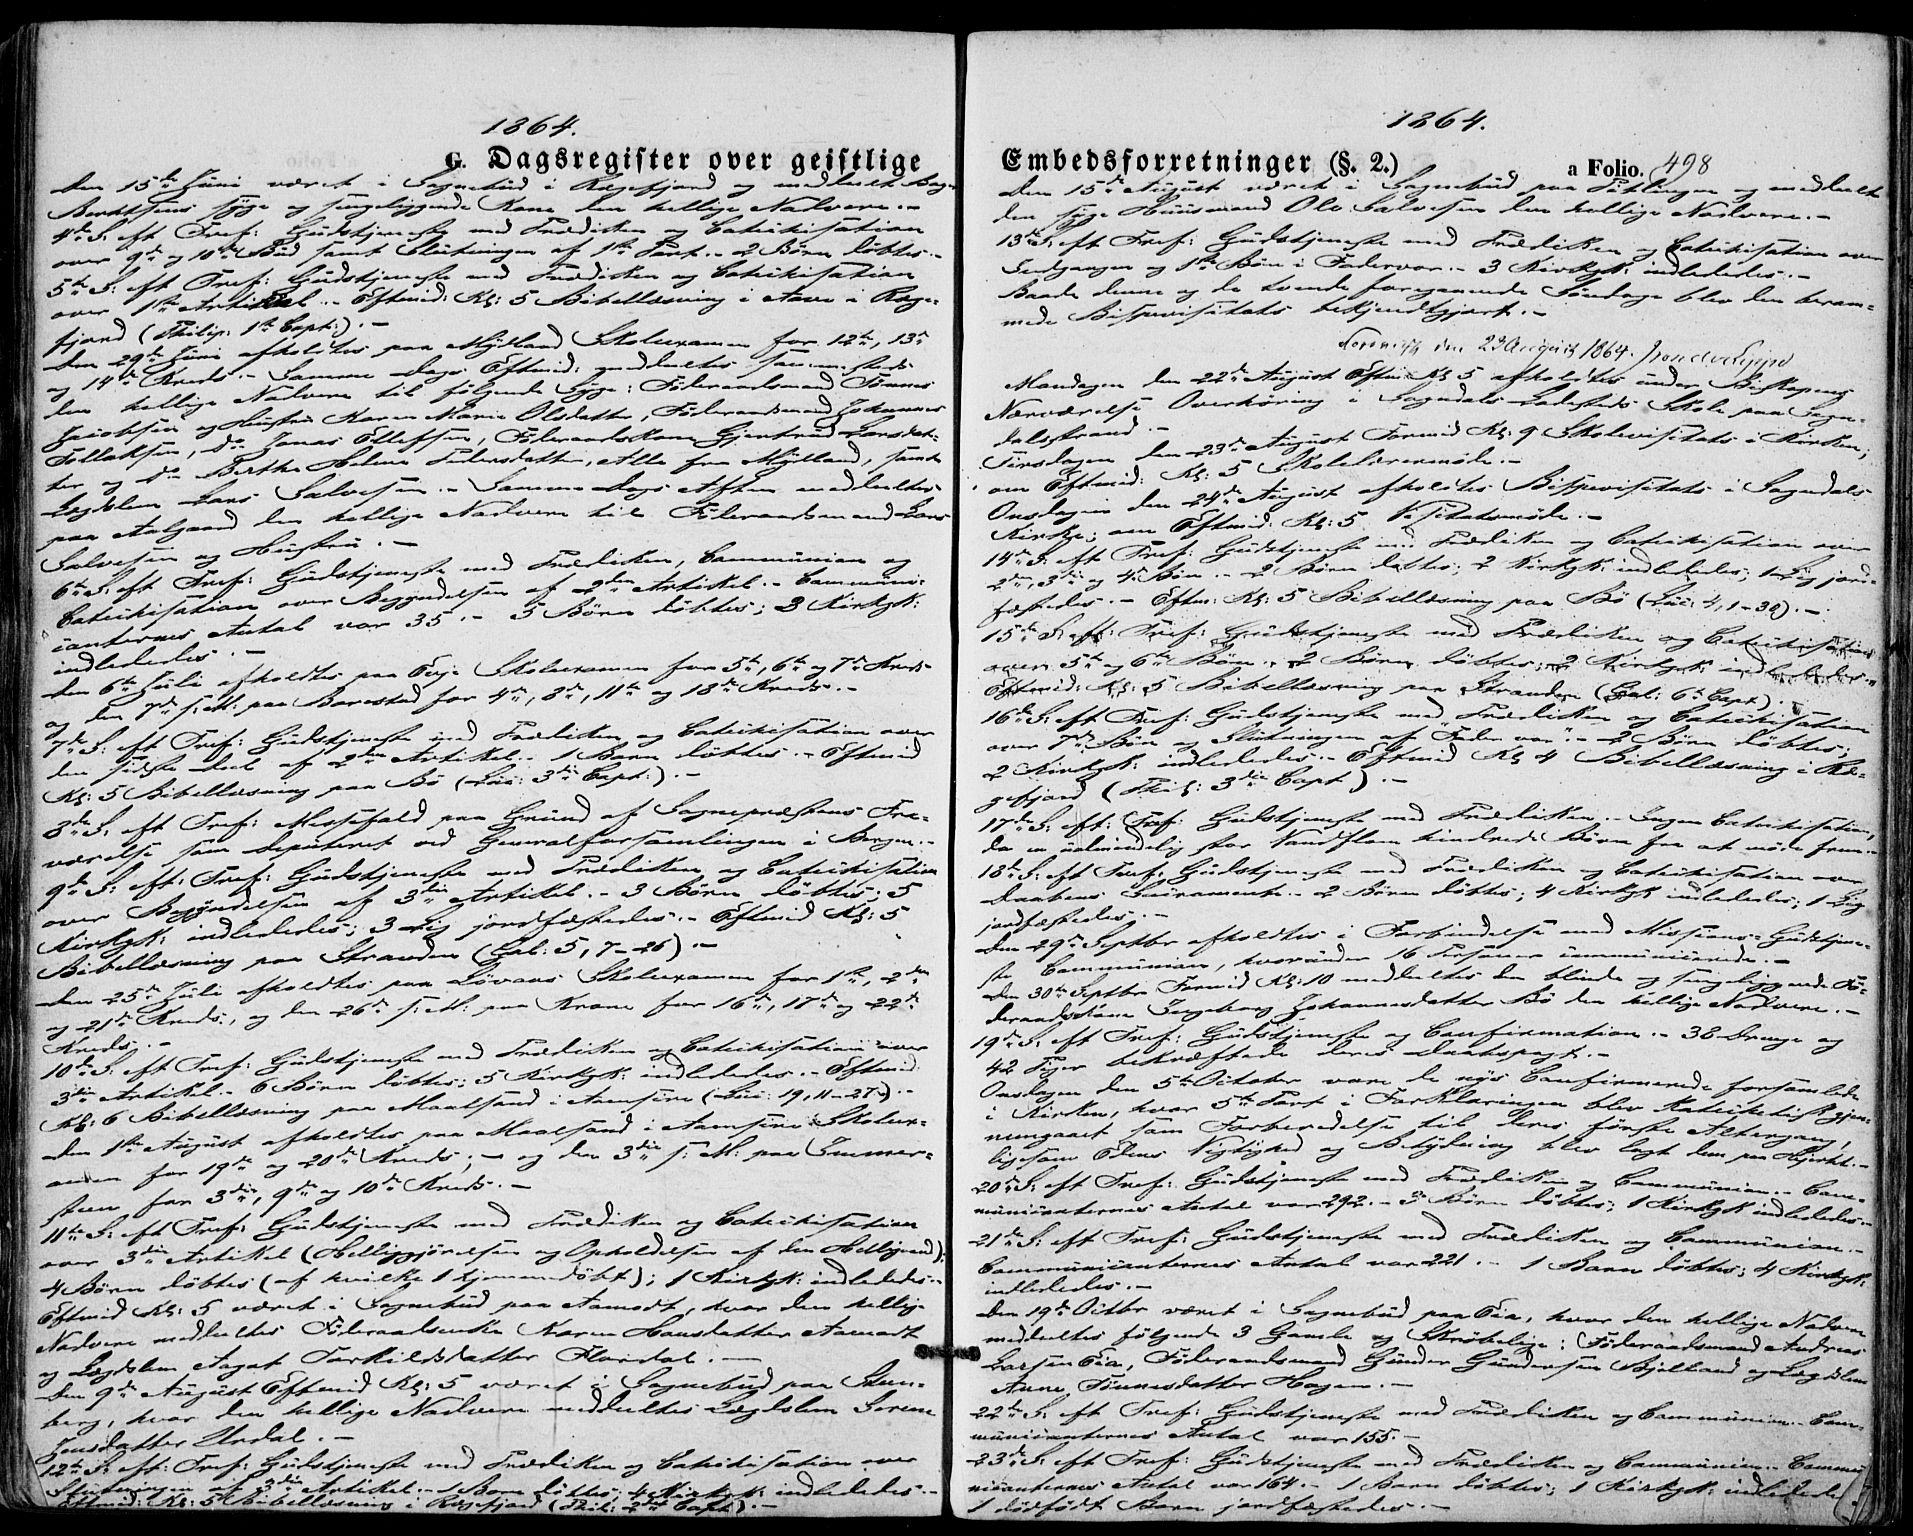 1864.
G. Dagsregister over geistlige
Den 15de Juni været i Sognebud i Rægefjord og meddeelt
Berntsens syge og sengeliggende Kone den hellige Nadvere.-
4de S: eft Tref: Gudstjeneste med Prædiken og Catechisation
over 9de og 10de Bud samt Slutningen af 1ste Part.- 2 Børn døbtes.-
5te S: eft Tref: Gudstjeneste med Prædiken og Catechisation
over 1ste Artikel.- Eftmid: Kl: 5 Bibellæsning i Aave i Ræge-
fjord (Philip: 1ste Capt:).-
Den 29de Juni afholdtes paa Mydland Skoleexamen for 12te, 13de
og 14de Kreds.- Samme Dags Eftmid: meddeeltes sammesteds
den hellige Nadvere til følgende Syge: Föderaadsmand Tønnes
Jacobsen og Hustru Karen Marie Olsdatter, Föderaadsmand Johannes
Tollaksen, do Jonas Ellefsen, Föderaadskone Gjertrud Larsdat-
ter og do Berthe Helene Pedersdatter, Alle fra Mydland, samt
Lægdslem Lars Salvesen.- Samme Dags Aften meddeeltes
paa Aalgaard den hellige Nadvere til Föderaadsmand Lars
Salvesen og Hustru.-
6te S: eft Tref: Gudstjeneste med Prædiken, Communion og
Catechisation over Begyndelsen af 2den Artikel.- Communi-
canternes Antal var 35.- 5 Børn døbtes; 3 Kirkgk:
indlededes.-
Den 6te Juli afholdtes paa Ege Skoleexamen for 5te, 6te og 7de Kreds
og den 7de s: M: paa Barestad for 4de, 8de, 11te og 18de Kreds.-
7de S: eft Tref: Gudstjeneste med Prædiken og Catechisation over
den sidste Deel af 2den Artikel.- 1 Barn døbtes.- Eftmid
Kl: 5 Bibellæsning paa Bø (Luc: 3die Capt:).-
8de S: eft Tref: Messefald paa Grund af Sognepræstens Fra-
værelse som Deputeret ved Generalforsamlingen i Bergen.-
9de S: eft: Tref: Gudstjeneste med Prædiken og Catechisation
over Begyndelsen af 3die Artikel.- 3 Børn døbtes; 5
Kirkgk: indlededes; 3 Lig jordfæstedes.- Eftmid Kl: 5
Bibellæsning paa Stranden (Gal: 5, 7-26).-
Den 25de Juli afholdtes paa Løvaas Skoleexamen for 1ste, 2den
og 21de Kreds, og den 26de s: M: paa Krone for 16de, 17de og 22de
Kreds.-
10de S: eft Tref: Gudstjeneste med Prædiken og Catechisation over
3die Artikel.- 6 Børn døbtes; 5 Kirkgk: indlededes.- Eftmid
Kl: 6 Bibellæsning paa Maalsand i Aamsire (Luc: 19, 11-27).-
Den 1ste August afholdtes paa Maalsand i Aamsire Skoleex-
amen for 19de og 20de Kreds;- og den 3die s: M: paa Immer-
steen for 3die, 9de og 10de Kreds.-
11te S: eft Tref: Gudstjeneste med Prædiken og Catechisation
over 3die Artikel (Helliggjørelsen og Opholdelsen af den Helligaand);
4 Børn døbtes (af hvilke 1 hjemmedøbt); 1 Kirkgk: indlededes.-
Eftmid Kl: 5 været i Sognebud paa Aamodt, hvor den hellige
Nadvere meddeeltes Föderaadsenke Karen Hansdatter Aamodt
og Lægdslem Aagot Torkildsdatter Flordal.-
Den 9de August Eftmid Kl: 5 været i Sognebud paa Steen-
berg, hvor den hellige Nadvere meddeeltes Lægdslem Serene
Jensdatter Urdal.-
12te S: eft: Tref: Gudstjeneste med Prædiken og Catechisation over
Slutningen af 3die Artikel.- 1 Barn døbtes; 4 Kirkgk: indlededes.-
Eftmid: Kl: 5 Bibellæsning i Rægefjord (Phil: 2det Capt:).-
1864.
Embedsforretninger (§. 2.) a Folio. 498
Den 15de August været i Sognebud paa Titlingen og meddeelt
den syge Huusmand Ole Salvesen den hellige Nadvere.-
13de S: eft Tref: Gudstjeneste med Prædiken og Catechisation over
Indgangen og 1ste Bøn i Fadervor.- 3 Kirkgk: indlededes.-
Baade denne og de tvende foregaaende Søndage blev den beram-
mede Bispevisitats bekjendtgjort.-
den 23 August 1864.
Mandagen den 22de August Eftm Kl 5 afholdtes under Biskopens
Nærværelse Overhøring i Sogndals Ladesteds Skole paa Sogn-
dalsstrand.-
Tirsdagen den 23de August Formid Kl: 9 Skolevisitats i Kirken,
om Eftmid: Kl: 5 Skolelærermøde.-
Onsdagen den 24de August afholdtes Bispevisitats i Sogndals
Kirke; om Eftmid: Kl: 5 Visitatsmøde.-
14de S: eft Tref: Gudstjeneste med Prædiken og Catechisation over
2den, 3die og 4de Bøn.- 2 Børn døbtes; 2 Kirkgk: indlededes; 1 Lig jord-
fæstedes.- Eftm: Kl: 5 Bibellæsning paa Bø (Luc: 4, 1-30).-
15de S: eft: Tref: Gudstjeneste med Prædiken og Catechisation
over 5te og 6te Bøn.- 2 Børn døbtes; 2 Kirkgk: indlededes.-
Eftmid: Kl: 5 Bibellæsning paa Stranden (Gal: 6te Capt).-
16de S: eft Tref: Gudstjeneste med Prædiken og Catechisation
over 7de Bøn og Slutningen af Fader vor.- 2 Børn døbtes;
2 Kirkgk: indlededes.- Eftmid Kl 4 Bibellæsning i Ræ-
gefjord (Phil: 3die Capt).-
17de S: eft: Tref: Gudstjeneste med Prædiken.- Ingen Catechisation,
da en ualmindelig stor Vandflom hindrede Børn fra at møde frem.-
18de S: eft Tref: Gudstjeneste med Prædiken og Catechisation over
Daabens Sacramente.- 2 Børn døbtes; 4 Kirkgk indlededes; 1 Lig
jordfæstedes.-
Den 29de Septbr afholdtes i Forbindelse med Missions-Gudstjene-
ste Communion, hvorunder 16 Personer communicerede.-
Den 30te Septbr Formid Kl: 10 meddeeltes den blinde og sengeliggende Fö-
deraadskone Ingeborg Johannesdatter Bø den hellige Nadvere.-
19de S: eft Tref: Gudstjeneste og Confirmation.- 38 Drenge og
42 Piger bekræftede deres Daabspagt.-
Onsdagen den 5te October vare de nys Confirmerede forsamlede
i Kirken, hvor 5te Part i Forklaringen blev katechetisk gjen-
nemgaaet som Forberedelse til deres første Altergang,
ligesom Edens Vigtighed og Betydning blev lagt dem paa Hjertet.-
20de S: eft Tref: Gudstjeneste med Prædiken og Communion.- Com-
municanternes Antal var 292.- 3 Børn døbtes; 1 Kirkgk indlededes.-
21de S: eft Tref: Gudstjeneste med Prædiken og Communion.-
Communicanternes Antal var 221.- 1 Barn døbtes; 4 Kirkgk:
indlededes.-
Den 19de Octbr været i Sognebud paa Eia, hvor den hellige Nadvere
meddeeltes følgende 3 Gamle og Skrøbelige: Föderaadsmand Andreas
Larsen Eia, Föderaadsmand Gunder Gundersen Bjelland og Lægdslem
Anne Tønnesdatter Hagen.-
22de S: eft Tref: Gudstjeneste med Prædiken og Communion.- Com-
municanternes Antal var 155.-
23de S: eft Tref: Gudstjeneste med Prædiken og Communion.- Commu-
nicanternes Antal var 164.- 1 Barn døbtes; 1 Kirkgk: indlededes.
1 dødfødt Barn jordfæstedes.-